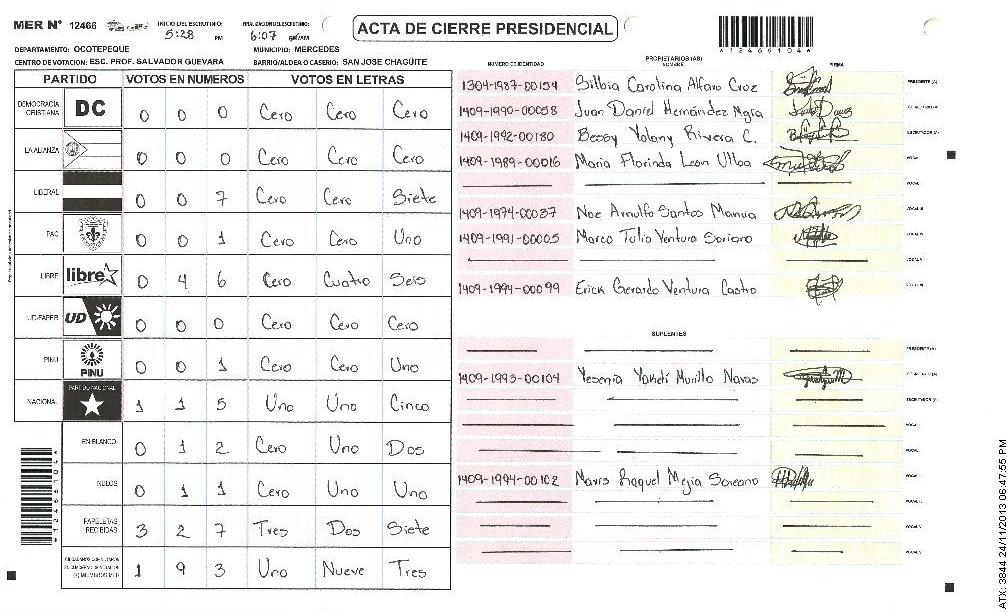 MER N° 12466 INICIO DEL ESCRUTINIO: 5:28 PM FINALIZACION DEL ESCRUTINIO: 6:07 ACTA DE CIERRE PRESIDENCIAL
DEPARTAMENTO: OCOTEPEQUE MUNICIPIO: MERCEDES
CENTRO DE VOTACION: ESC. PROF. SALVADOR GUEVARA BARRIO/ALDEA O CASERIO: SAN JOSE CHAGÜITE
PARTIDO VOTOS EN NUMEROS VOTOS EN LETRAS
DEMOCRACIA CRISTIANA DC 0 0 0 Cero Cero Cero
LA ALIANZA 0 0 0 Cero Cero Cero
LIBERAL 0 0 7 Cero Cero Siete
PAC 0 0 1 Cero Cero Uno
LIBRE libre 0 4 6 Cero Cuatro Seis
UD-FAPER UD 0 0 0 Cero Cero Cero
PINU PINU 0 0 1 Cero Cero Uno
NACIONAL PARTIDO NACIONAL 1 1 5 Uno Uno Cinco
EN BLANCO 0 1 2 Cero Uno Dos
NULOS 0 1 1 Cero Uno Uno
PAPELETAS RECIBIDAS 3 2 7 Tres Dos Siete
1 9 3 Uno Nueve Tres
*12466104*
NUMERO DE IDENTIDAD PROPIETARIOS (AS) NOMBRE FIRMA
1304-1987-00154 Silbia Carolina Alfaro Cruz PRESIDENTE (A)
1409-1990-00058 Juan Daniel Hernández Mejía SECRETARIO (A)
1409-1992-00180 Bessy Yolany Rivera C. ESCRUTADOR (A)
1409-1989-00016 Maria Florinda Leon Ulloa VOCAL I
VOCAL II
1409-1974-00037 Noe Arnulfo Santos VOCAL III
1409-1991-00005 Marco Tulio Ventura Soriano VOCAL IV
VOCAL V
1409-1994-00099 Erick Gerardo Ventura Castro
SUPLENTES
PRESIDENTE (A)
1409-1993-00104 Yesenia Murillo Navas SECRETARIO (A)
ESCRUTADOR (A)
VOCAL I
1409-1994-00102 Raquel Mejia
ATX: 3844 24/11/2013 06:47:55 PM